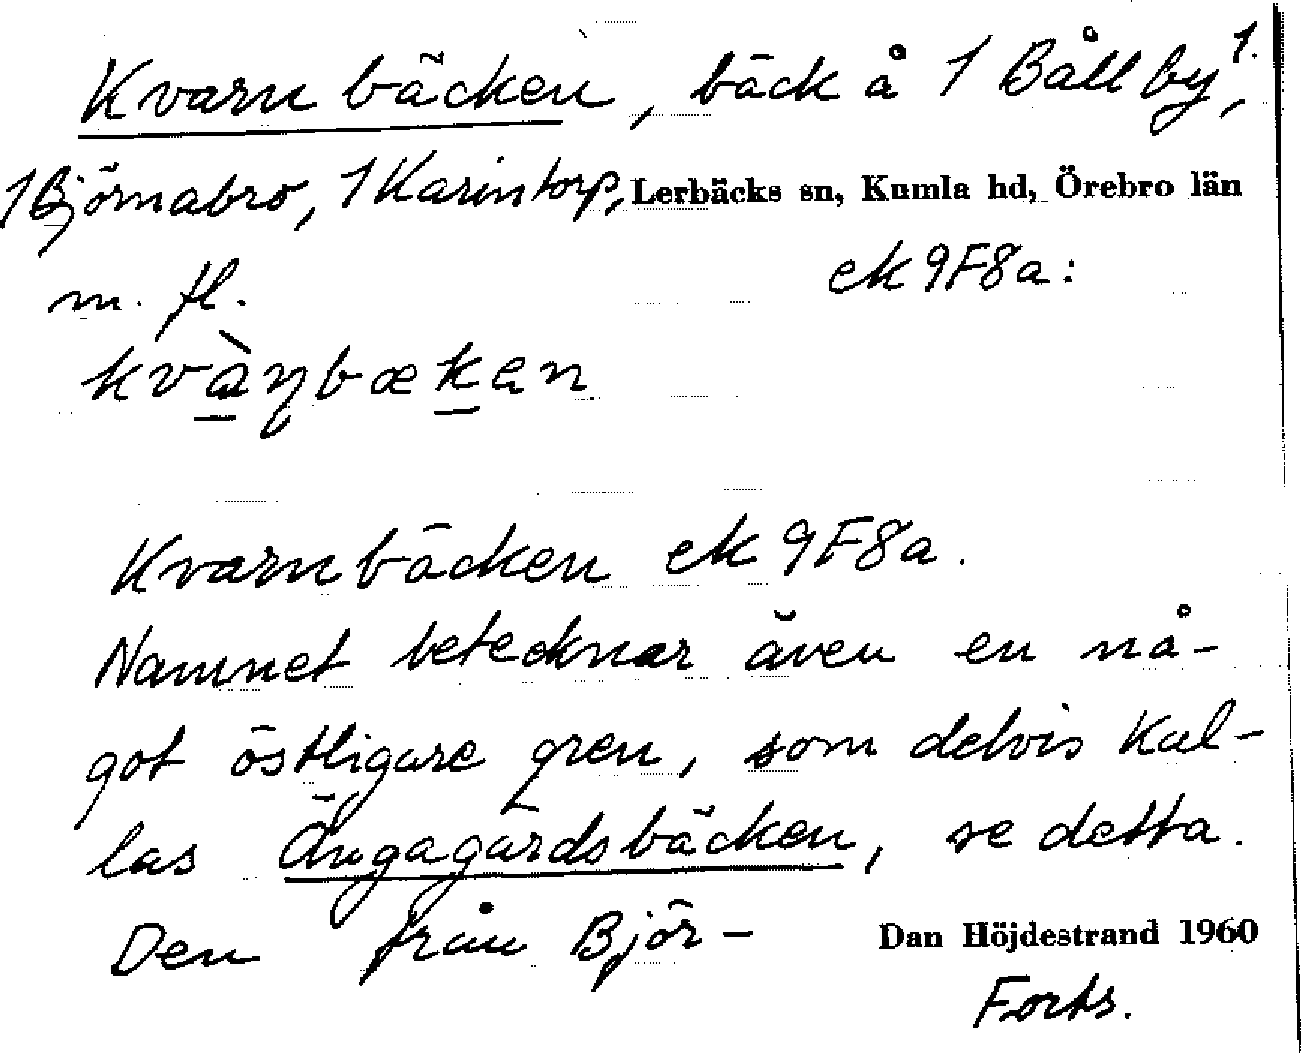 Kvarnbäcken, bäck å 1 Bållby, 1.
1 Björnabro, 1 Karintorp, Lerbäcks sn, Kumla hd, Örebro län
m. fl. ek 9F8a:
kvàɳbækan
Kvarnbäcken ek 9F8a.
Namnet betecknar även en nå-
got östligare gren, som delvis kal-
las Ängagärdsbäcken, se detta.
Den från Björ- Dan Höjdestrand 1960
Forts.